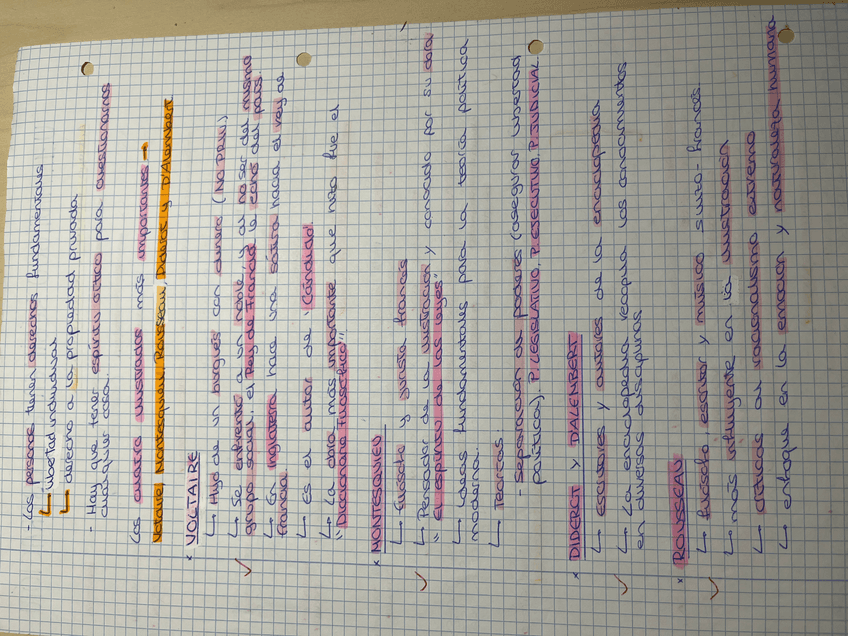 - Las personas tienen derechos fundamentales
↳ libertad individual
↳ derecho a la propiedad privada
- Hay que tener espíritu crítico para cuestionarnos
cualquier cosa.
Los cuatro ilustrados más importantes →
Voltaire, Montesquieu, Rousseau, Diderot y D'Alembert
* VOLTAIRE
↳ Hijo de un burgués con dinero (NO PRIV.)
↳ Se enfrentó a un noble, y al no ser del mismo
grupo social, el Rey de Francia lo echó del país
↳ En Inglaterra hace una sátira hacia el rey de
Francia.
↳ Es el autor de "Cándido".
↳ La obra más importante que hizo fue el
"Diccionario Filosófico"
* MONTESQUIEU
↳ filósofo y jurista francés
↳ Pensador de la ilustración y conocido por su obra
"El espíritu de las leyes"
↳ Ideas fundamentales para la teoría política
moderna.
↳ Teorías:
- Separación de poderes (asegurar libertad
política). P. LEGISLATIVO, P. EJECUTIVO, P. JUDICIAL
* DIDEROT y D'ALEMBERT
↳ escritores y autores de la enciclopedia
↳ La enciclopedia recopila los conocimientos
en diversas disciplinas
* ROUSSEAU
↳ filósofo, escritor y músico suizo-francés
↳ más influyente en la ilustración
↳ críticas al racionalismo extremo
↳ enfoque en la emoción y naturaleza humana